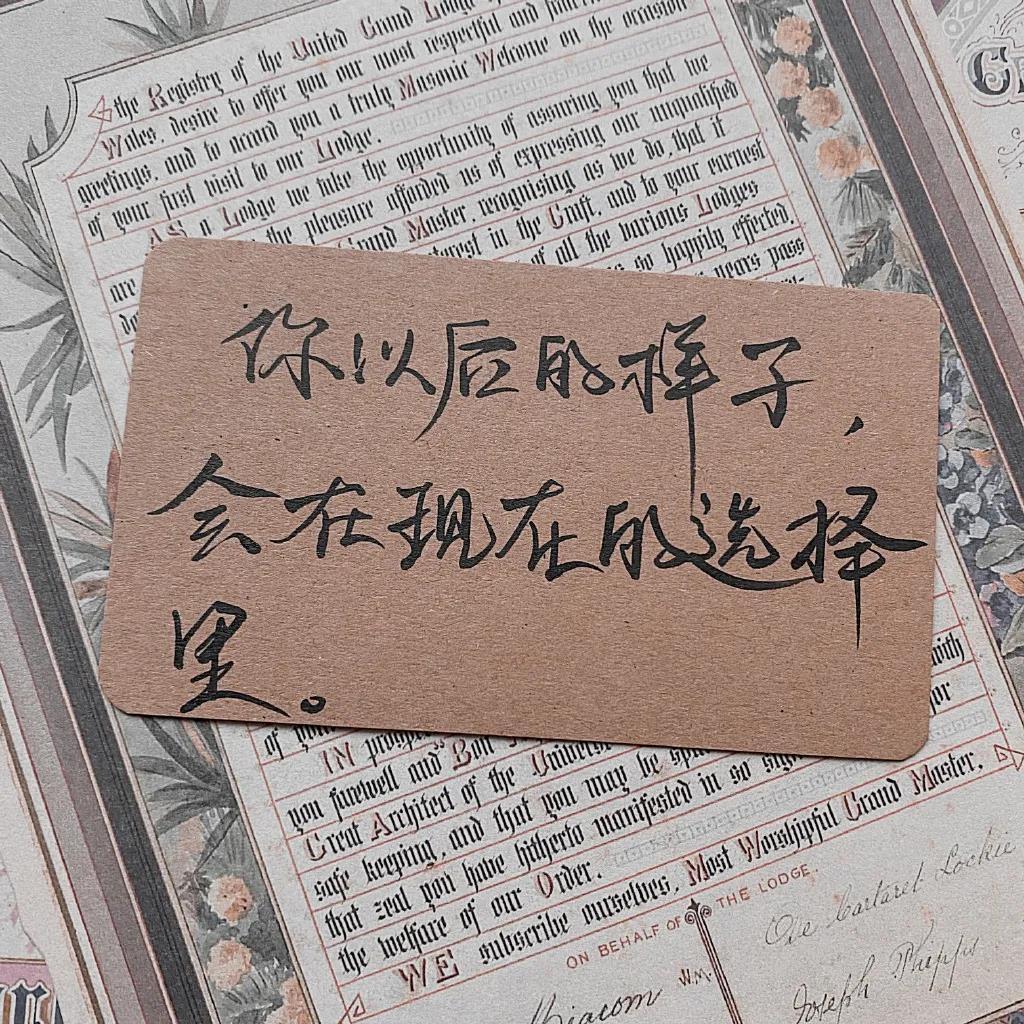 the Registry of the United Grand Lodge
Wales, desire to offer you our most respectful and
greetings, and to accord you a truly Masonic Welcome on the occasion
of your first visit to our Lodge.
AS a Lodge we take the opportunity of assuring you that we
are the pleasure afforded us of expressing our unqualified
Grand Master, recognising as we do, that it
interest in the Craft, and to your earnest
of all the various Lodges
is so happily effected.
years pass
你以后的样子,
会在现在的选择
里。
with
for
of your
IN
you farewell and
Great Architect of the
safe keeping, and that you may be
that zeal you have hitherto manifested in so
the welfare of our Order.
WE subscribe ourselves, Most Worshipful Grand Master,
ON BEHALF OF THE LODGE.
W.M.
Joseph Phipps